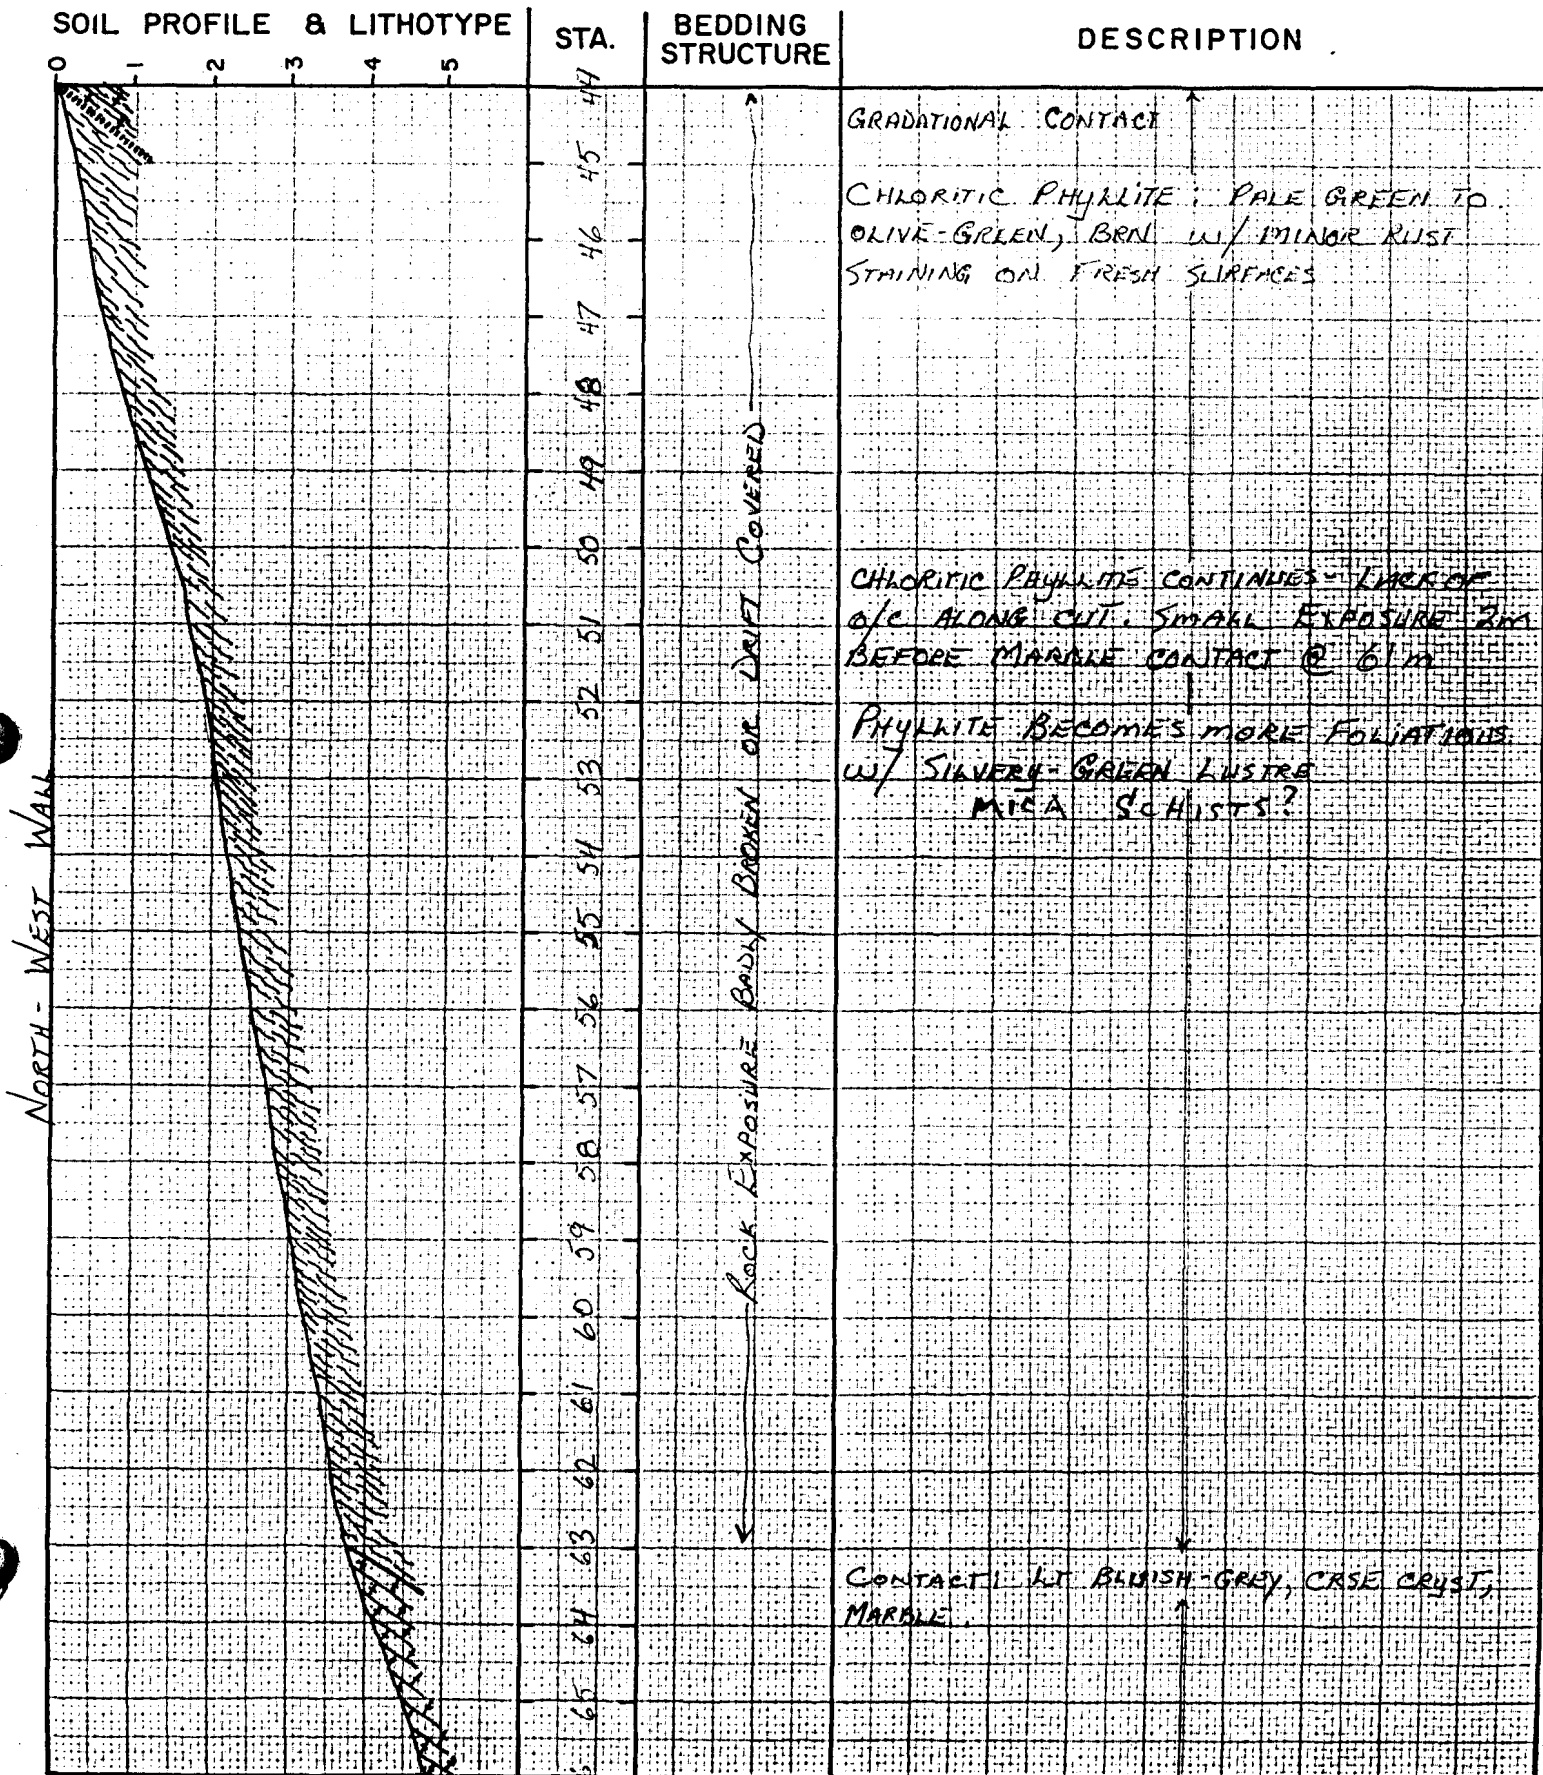 SOIL PROFILE & LITHOTYPE
STA.
BEDDING
STRUCTURE
DESCRIPTION
0 1 2 3 4 5
44
45
46
47
48
49
50
51
52
53
54
55
56
57
58
59
60
61
62
63
64
65
NORTH - WEST WALL
ROCK EXPOSURE BADLY BROKEN OR DRIFT COVERED
GRADATIONAL CONTACT
CHLORITIC PHYLLITE: PALE GREEN TO
OLIVE-GREEN, BRN W/ MINOR RUST
STAINING ON FRESH SURFACES
CHLORITIC PHYLLITE CONTINUES - LACK OF
O/C ALONG CUT. SMALL EXPOSURE 2m
BEFORE MARBLE CONTACT @ 61 m
PHYLLITE BECOMES MORE
W/ SILVERY-GREEN LUSTRE
MICA SCHISTS?
CONTACT: LT BLUISH-GREY, CRSE CRYST,
MARBLE.